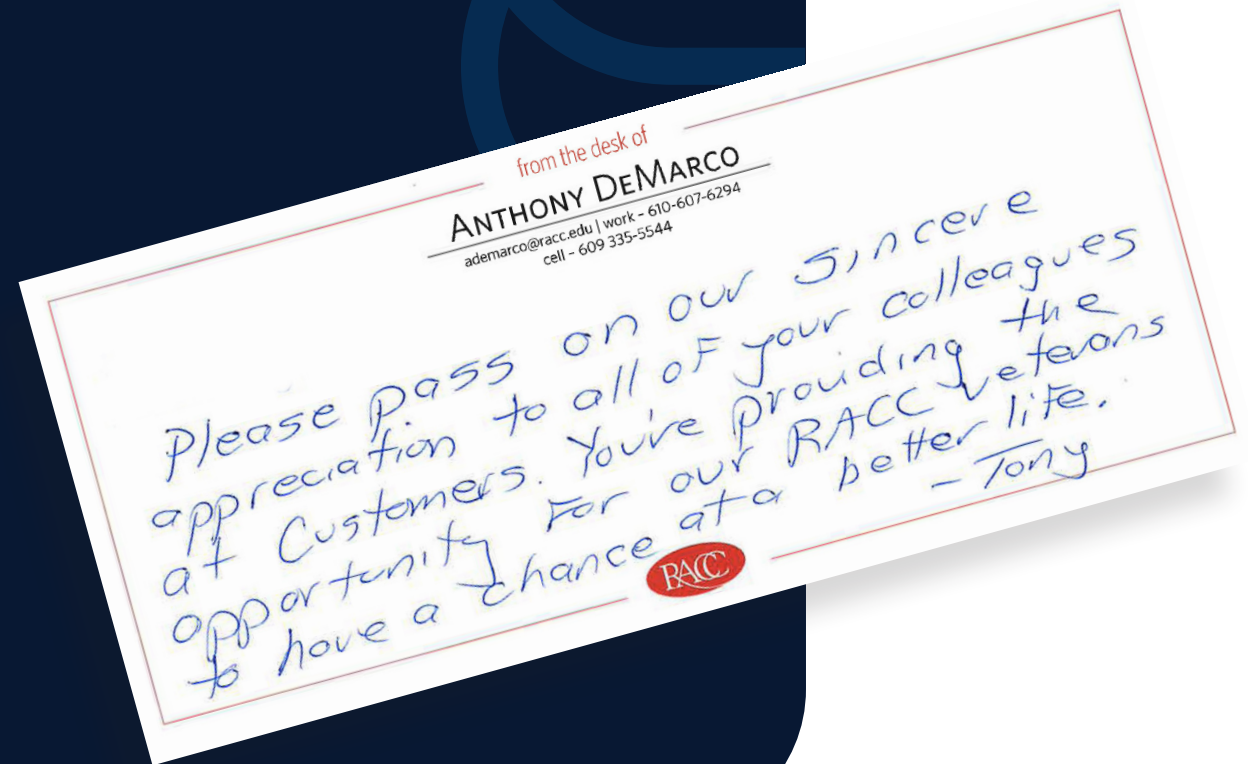 from the desk of
ANTHONY DEMARCO
ademarco@racc.edu | work - 610-607-6294
cell - 609 335-5544
Please pass on our sincere
appreciation to all of your colleagues
at Customers. You're providing the
opportunity for our RACC veterans
to have a chance at a better life.
- Tony
RACC